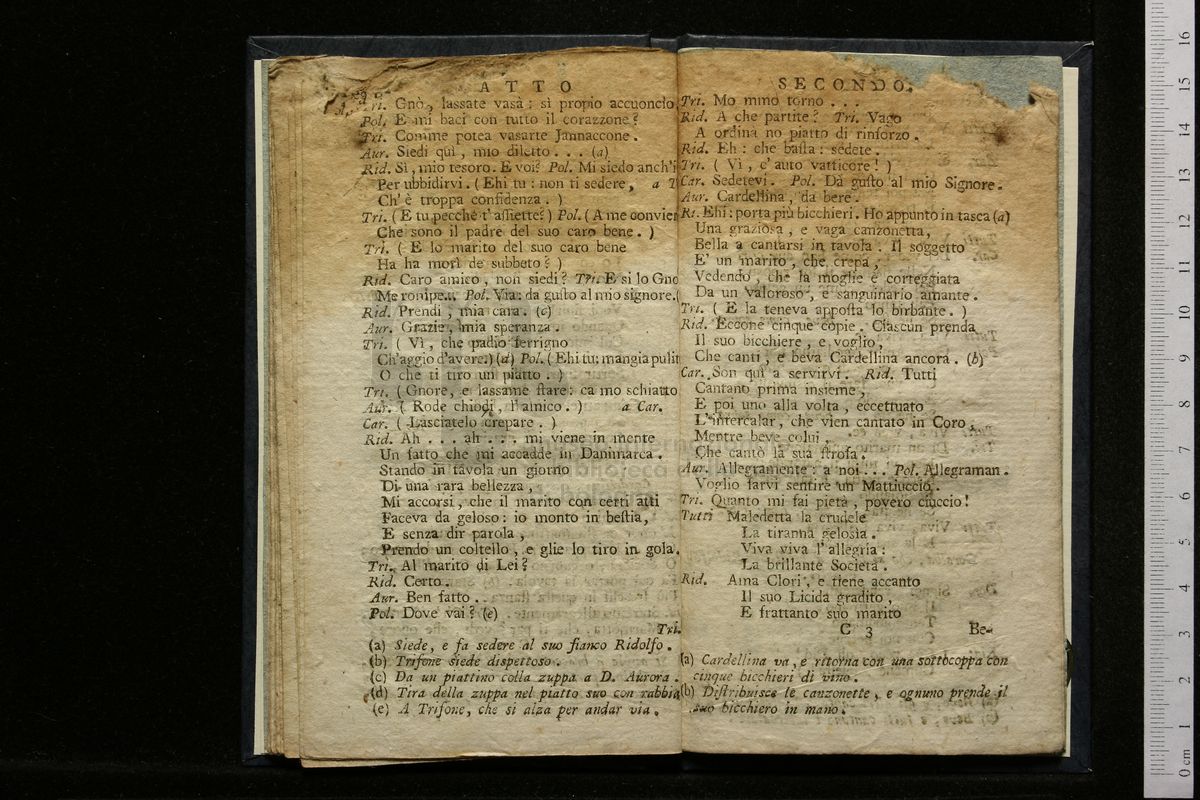 ATTO
Tri. Gnò, lassate vasà: sì propio accuoncio.
Pol. E mi baci con tutto il corazzone?
Tri. Comme potea vasarte Jannaccone.
Aur. Siedi quì, mio diletto... (a)
Rid. Sì, mio tesoro. E voi? Pol. Mi siedo anch'i
Per ubbidirvi. (Ehi tu: non ti sedere, a T
Ch'è troppa confidenza.)
Tri. (E tu pecchè t'assiette?) Pol. (A me convien
Che sono il padre del suo caro bene.)
Tri. (E lo marito del suo caro bene
Ha ha morì de subbeto?)
Rid. Caro amico, non siedi? Tri. E sì lo Gno
Me rompe... Pol. Via: da gusto al mio signore.(
Rid. Prendi, mia cara. (c)
Aur. Grazie, mia speranza.
Tri. (Vì, che padio ferrigno
Ch'aggio d'avere.) (d) Pol. (Ehi tu: mangia pulit
O che ti tiro un piatto.)
Tri. (Gnore, e lassame stare: ca mo schiatto
Aur. (Rode chiodi, l'amico.) a Car.
Car. (Lasciatelo crepare.)
Rid. Ah... ah... mi viene in mente
Un fatto che mi accadde in Danimarca.
Stando in tavola un giorno
Di una rara bellezza,
Mi accorsi, che il marito con certi atti
Faceva da geloso: io monto in bestia,
E senza dir parola,
Prendo un coltello, e glie lo tiro in gola.
Tri. Al marito di Lei?
Rid. Certo.
Aur. Ben fatto.
Pol. Dove vai? (e)
Tri.
(a) Siede, e fa sedere al suo fianco Ridolfo.
(b) Trifone siede dispettoso.
(c) Da un piattino colla zuppa a D. Aurora.
(d) Tira della zuppa nel piatto suo con rabbia
(e) A Trifone, che si alza per andar via.
SECONDO.
Tri. Mo mmo torno...
Rid. A che partite? Tri. Vago
A ordinà no piatto di rinforzo.
Rid. Eh: che basta: sedete.
Tri. (Vì, c'auto vatticore!)
Car. Sedetevi. Pol. Dà gusto al mio Signore.
Aur. Cardellina, da bere.
Ri. Ehi: porta più bicchieri. Ho appunto in tasca (a)
Una graziosa, e vaga canzonetta,
Bella a cantarsi in tavola. Il soggetto
E' un marito, che crepa,
Vedendo, che la moglie è corteggiata
Da un valoroso, e sanguinario amante.
Tri. (E la teneva apposta lo birbante.)
Rid. Eccone cinque copie. Ciascun prenda
Il suo bicchiere, e voglio,
Che canti, e beva Cardellina ancora. (b)
Car. Son quì a servirvi. Rid. Tutti
Cantano prima insieme,
E poi uno alla volta, eccettuato
L'intercalar, che vien cantato in Coro,
Mentre beve colui,
Che cantò la sua strofa.
Aur. Allegramente: a noi... Pol. Allegraman.
Voglio farvi sentire un Mattiuccio.
Tri. Quanto mi fai pietà, povero ciuccio!
Tutti Maledetta la crudele
La tiranna gelosia.
Viva viva l'allegria:
La brillante Società.
Rid. Ama Clori, e tiene accanto
Il suo Licida gradito,
E frattanto suo marito
C 3 Be-
(a) Cardellina va, e ritorna con una sottocoppa con
cinque bicchieri di vino.
(b) Distribuisce le canzonette, e ognuno prende il
suo bicchiero in mano.